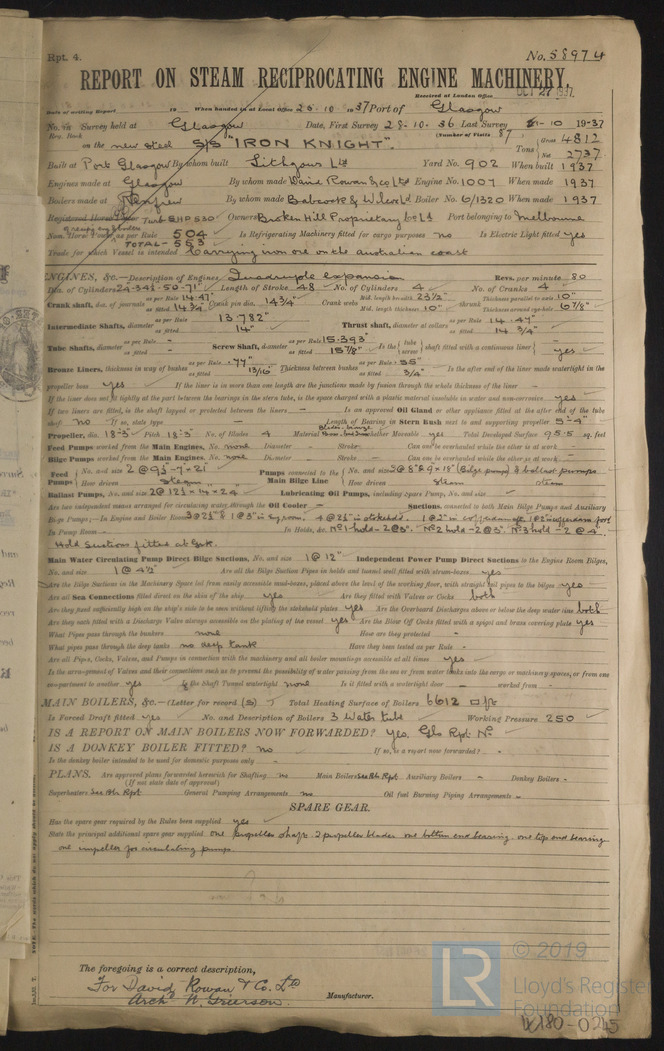 Rpt. 4. No. 58974
REPORT ON STEAM RECIPROCATING ENGINE MACHINERY.
Received at London Office OCT 27 1937
Date of writing Report 19 When handed in at Local Office 26-10-1937 Port of Glasgow
No. in Survey held at Glasgow Date, First Survey 28-10-36 Last Survey 10-1937
Reg. Book (Number of Visits 87)
on the new steel S/S "IRON KNIGHT". Tons Gross 4812
Net 2737
Built at Port Glasgow By whom built Lithgows Ltd Yard No. 902 When built 1937
Engines made at Glasgow By whom made David Rowan & Co Ltd Engine No. 1007 When made 1937
Boilers made at Renfrew By whom made Babcock & Wilcox Ld Boiler No. 6/1320 When made 1937
Registered Horse Power Turb SHP 530 Owners Broken Hill Proprietary Co Ld Port belonging to Melbourne
Nom. Horse Power as per Rule 504 Is Refrigerating Machinery fitted for cargo purposes no Is Electric Light fitted yes
TOTAL - 553
Trade for which Vessel is intended Carrying iron ore on the Australian coast
ENGINES, &c.—Description of Engines Quadruple expansion Revs. per minute 80
Dia. of Cylinders 24-34½-50-71" Length of Stroke 48 No. of Cylinders 4 No. of Cranks 4
Crank shaft, dia. of journals as per Rule 14.47" as fitted 14¾" Crank pin dia. 14¾" Crank webs Mid. length breadth 23½" Mid. length thickness 10" shrunk Thickness parallel to axis 10" Thickness around eye-hole 6⅞"
Intermediate Shafts, diameter as per Rule 13.782" as fitted 14" Thrust shaft, diameter at collars as per Rule 14.47" as fitted 14¾"
Tube Shafts, diameter as per Rule - as fitted - Screw Shaft, diameter as per Rule 15.393" as fitted 15⅞" Is the tube screw shaft fitted with a continuous liner yes
Bronze Liners, thickness in way of bushes as per Rule .77" as fitted 13/16" Thickness between bushes as per Rule .58" as fitted ¾" Is the after end of the liner made watertight in the
propeller boss yes If the liner is in more than one length are the junctions made by fusion through the whole thickness of the liner -
If the liner does not fit tightly at the part between the bearings in the stern tube, is the space charged with a plastic material insoluble in water and non-corrosive yes
If two liners are fitted, is the shaft lapped or protected between the liners - Is an approved Oil Gland or other appliance fitted at the after end of the tube
shaft no If so, state type - Length of Bearing in Stern Bush next to and supporting propeller 5'-4"
Propeller, dia. 18'-3" Pitch 18'-3" No. of Blades 4 Material whether Moveable yes Total Developed Surface 95.5 sq. feet
Feed Pumps worked from the Main Engines, No. none Diameter - Stroke - Can one be overhauled while the other is at work -
Bilge Pumps worked from the Main Engines, No. none Diameter - Stroke - Can one be overhauled while the other is at work -
Feed Pumps No. and size 2 @ 9½"-7"x21" How driven Steam Pumps connected to the Main Bilge Line No. and size 2 @ 8" & 9"x18" (Bilge pumps) & ballast pumps How driven steam steam
Ballast Pumps, No. and size 2 @ 12½"x14"x24" Lubricating Oil Pumps, including Spare Pump, No. and size -
Are two independent means arranged for circulating water through the Oil Cooler - Suctions, connected to both Main Bilge Pumps and Auxiliary
Bilge Pumps;—In Engine and Boiler Room
In Pump Room - In Holds, &c. No 1 hold-2 @ 3". No 2 hold-2 @ 3". No 3 hold-2 @ 4".
Hold Suctions fitted at Gsk.
Main Water Circulating Pump Direct Bilge Suctions, No. and size 1 @ 12" Independent Power Pump Direct Suctions to the Engine Room Bilges,
No. and size 1 @ 4½" Are all the Bilge Suction Pipes in holds and tunnel well fitted with strum-boxes yes
Are the Bilge Suctions in the Machinery Space led from easily accessible mud-boxes, placed above the level of the working floor, with straight tail pipes to the bilges yes
Are all Sea Connections fitted direct on the skin of the ship yes Are they fitted with Valves or Cocks both
Are they fixed sufficiently high on the ship's side to be seen without lifting the stokehold plates yes Are the Overboard Discharges above or below the deep water line both
Are they each fitted with a Discharge Valve always accessible on the plating of the vessel yes Are the Blow Off Cocks fitted with a spigot and brass covering plate yes
What Pipes pass through the bunkers none How are they protected -
What pipes pass through the deep tanks no deep tank Have they been tested as per Rule -
Are all Pipes, Cocks, Valves, and Pumps in connection with the machinery and all boiler mountings accessible at all times yes
Is the arrangement of Valves and their connections such as to prevent the possibility of water passing from the sea or from water tanks into the cargo or machinery spaces, or from one
compartment to another yes Is the Shaft Tunnel watertight none Is it fitted with a watertight door - worked from -
MAIN BOILERS, &c.—(Letter for record (S)) Total Heating Surface of Boilers 6612 □ ft
Is Forced Draft fitted yes No. and Description of Boilers 3 Water tube Working Pressure 250
IS A REPORT ON MAIN BOILERS NOW FORWARDED? Yes, Gls Rpt No
IS A DONKEY BOILER FITTED? no If so, is a report now forwarded? -
Is the donkey boiler intended to be used for domestic purposes only -
PLANS. Are approved plans forwarded herewith for Shafting no Main Boilers See Blr Rpt Auxiliary Boilers - Donkey Boilers -
(If not state date of approval)
Superheaters See Blr Rpt General Pumping Arrangements no Oil fuel Burning Piping Arrangements -
SPARE GEAR.
Has the spare gear required by the Rules been supplied yes
State the principal additional spare gear supplied one propeller shaft. 2 propeller blades one bottom end bearing. one top end bearing
one impeller for circulating pump.
The foregoing is a correct description,
For David Rowan & Co. Ltd
Archd. W. Grierson. Manufacturer.
© 2019
LR Lloyd's Register
Foundation
W180-0245